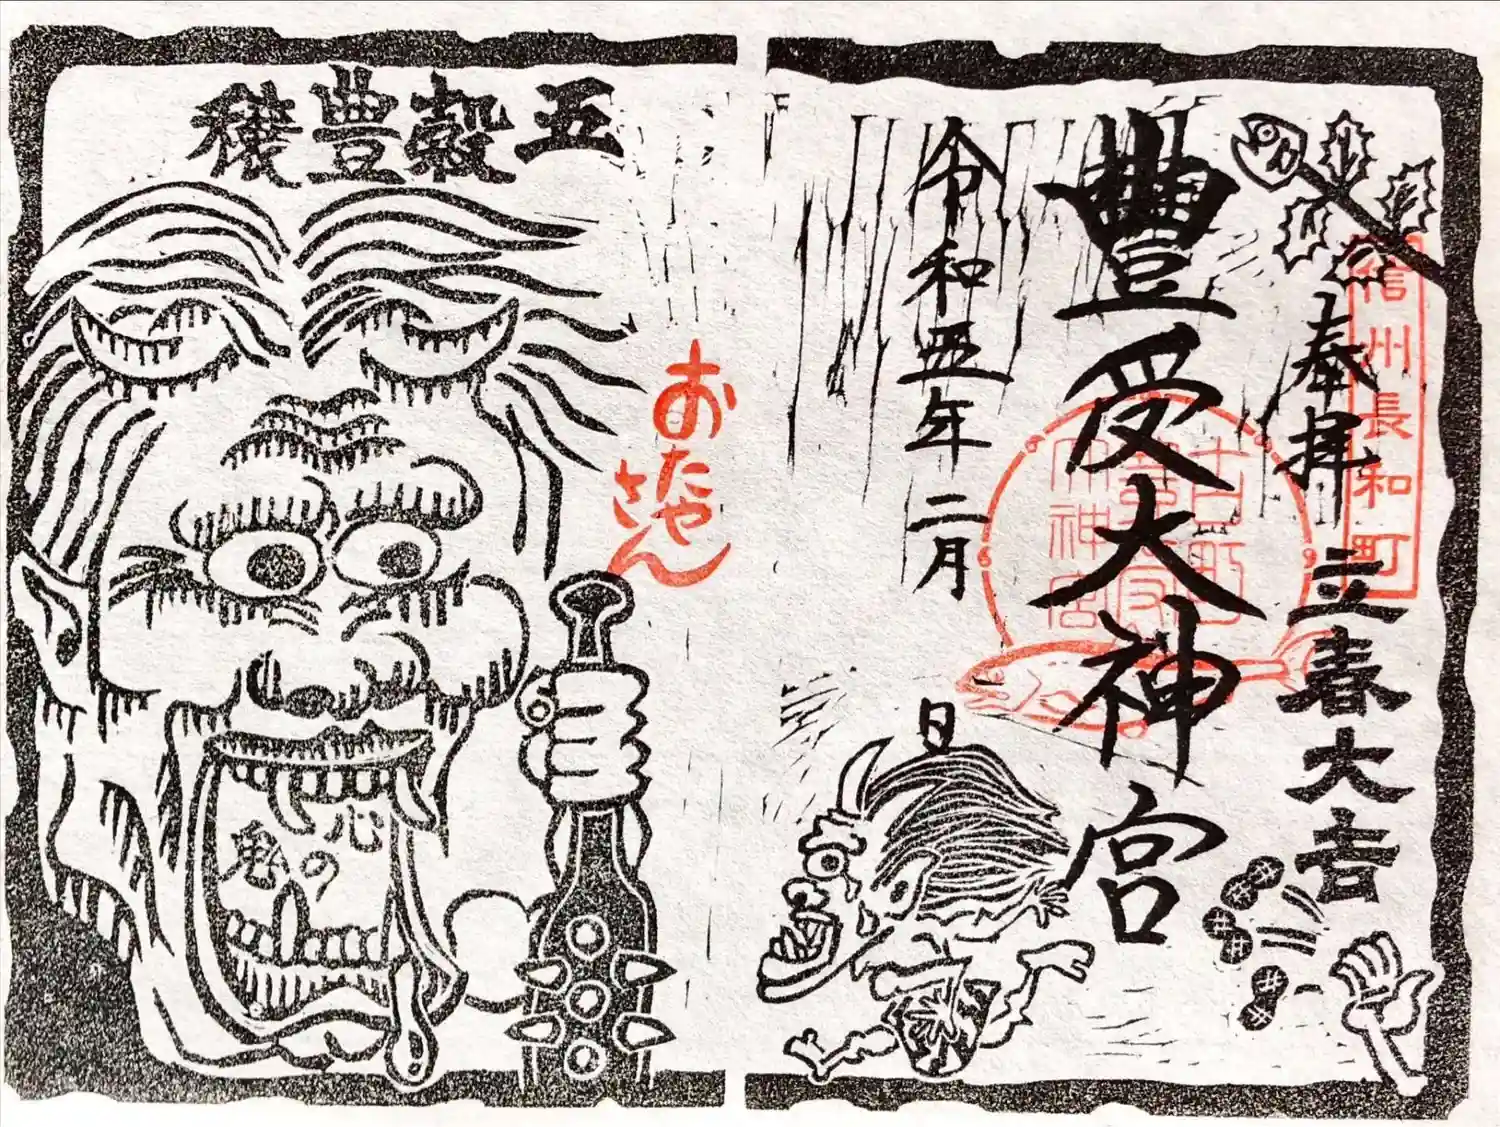 奉拝 立春大吉
信州長和町
豊受大神宮
古町
豊受
大神宮
令和五年 二月 日
五穀豊穣
おたや
さん
心の鬼